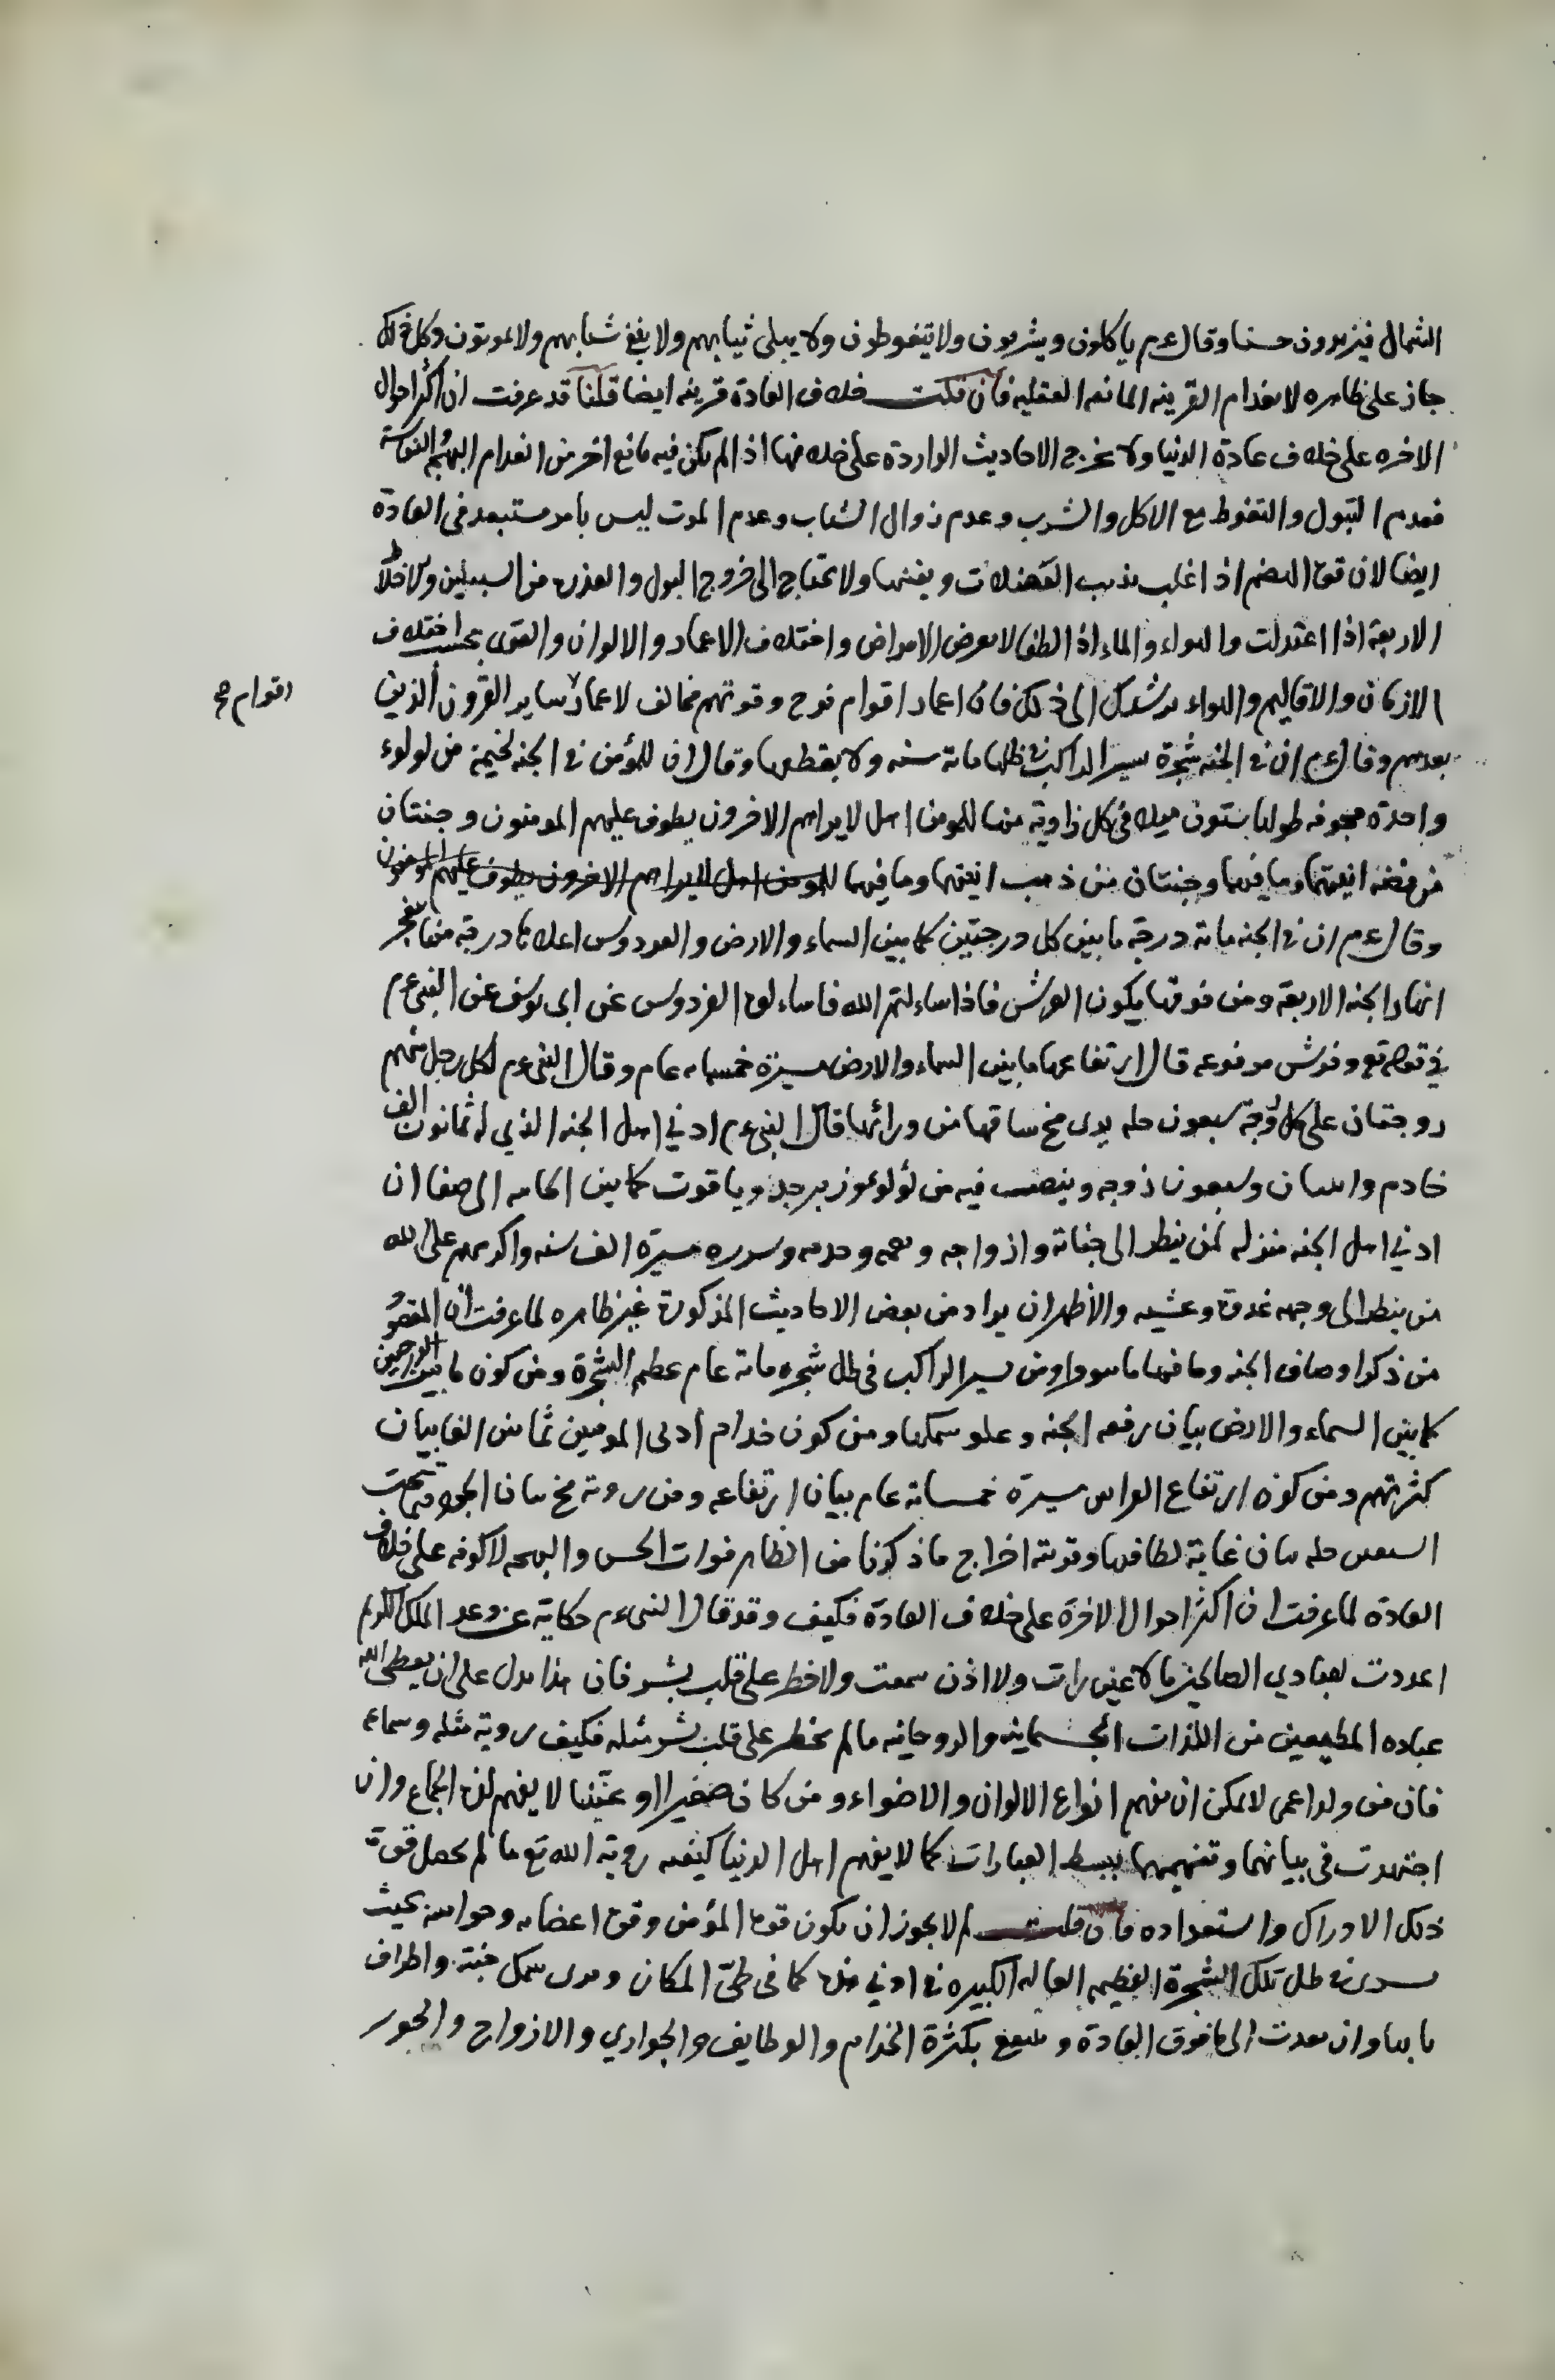 الشمال فيزيدون حسنا وقال عم ياكلون ويشربون ولا يتغوطون ولا يبلى ثيابهم ولا يفنى شبابهم ولا يموتون وكل ذلك
جاز على ظاهره لانعدام القرينه المانعه العقليه فان قلت خلاف العادة قرينه ايضا قلنا قد عرفت ان اكثر احوال
الاخره على خلاف عادة الدنيا ولا يخرج الاحاديث الواردة على خلافها اذا لم يكن فيه مانع اخر من انعدام
فعدم التبول والتغوط مع الاكل والشرب وعدم زوال الشباب وعدم الموت ليس بامر مستبعد فى العادة
ايضا لان قوة الهضم اذا غلب يذيب الفضلات ويفنيها ولا يحتاج الى خروج البول والعذرة من السبيلين والاخلاط
الاربعة اذا اعتدلت والهواء والماء اذا لطفا لا يعرض الامراض واختلاف الاعمار والالوان والقوى بحسب اختلاف
الازمان والاقاليم والهواء يرشدك الى ذلك فان اعمار اقوام نوح وقوتهم مخالف لاعمار ساير القرون الذين
اقوام صح
بعدهم وقال عم ان فى الجنه شجرة يسير الراكب فى ظلها ماىة سنه ولا يقطعها وقال ان للمؤمن فى الجنه لخيمة من لولوء
واحدة مجوفه طولها ستون ميلا فى كل زاوية منها للمومن اهل لا يراهم الاخرون يطوف عليهم المومنون وجنتان
من فضه انيتهما وما فيهما وجنتان من ذهب انيتهما وما فيهما للمومن اهل لا يراهم الاخرون يطوف عليهم المومنون
وقال عم ان فى الجنه ماىة درجة ما بين كل درجتين كما بين السماء والارض والفردوس اعلاها درجة منها تفجر
انهار الجنه الاربعة ومن فوقها يكون العرش فاذا سالتم الله فاسالوه الفردوس عن ابى يوسف عن النبى عم
فى قوله تع وفرش مرفوعه قال ارتفاعها ما بين السماء والارض مسيرة خمسماىه عام وقال النبى عم لكل رجل منهم
زوجتان على كل زوجة سبعون حله يرى مخ ساقها من ورائها قال النبى عم ادنى اهل الجنه الذى له ثمانون الف
خادم واثنتان وسبعون زوجه وينصب فيه من لؤلوء وزبرجد وياقوت كما بين الجابيه الى صنعا ان
ادنى اهل الجنه منزله لمن ينظر الى جنانه وازواجه ونعمه وخدمه وسرره مسيرة الف سنه واكرمهم على الله
من ينظر الى وجهه غدوة وعشيه والأظهر ان يراد من بعض الاحاديث المذكورة غير ظاهره لما عرفت أن المقصود
من ذكر اوصاف الجنه وما فيها ومن يسير الراكب فى ظل شجره ماىة عام عظم الشجرة ومن كون ما بين الدرجتين
كما بين السماء والارض بيان رفعه الجنه وعلو سمكها ومن كون خدام أدنى المومنين ثمانين الفا بيان
كثرتهم ومن كون ارتفاع الفراش مسيرة خمسماىة عام بيان ارتفاعه ومن روية مخ ساق تحت
السبعين حله بيان غاية لطافتها وقوية اخراج ما ذكرنا من الظاهر فوات الحسن والبهجه لا كونه على خلاف
العادة لما عرفت ان اكثر احوال الاخرة على خلاف العادة فكيف وقد قال النبى عم حكاية عن وعد الملك الكريم
اعددت لعبادي الصالحين ما لا عين رات ولا اذن سمعت ولا خطر على قلب بشر فان هذا يدل على ان يعطى الله
عباده المطيعين من اللذات الجسمانيه والروحانيه ما لم يخطر على قلب بشر مثله فكيف روية مثله وسماع
فان من ولد اعمى لا يمكن ان يفهم انواع الالوان والاضواء ومن كان صغيرا او عنينا لا يفهم لذة الجماع وان
اجتهدت فى بيانها وتفهيمها ببسط العبارات كما لا يفهم اهل الدنيا كيفيه روية الله تع ما لم يحصل قوة
ذلك الادراك واستعداده فان قلت لم لا يجوز ان يكون قوة المؤمن وقوة اعضاىه وحواسه بحيث
يسرى فى ظل تلك الشجرة العظيمه العاليه الكبيره فى ادنى مدة كما فى طى المكان ويرى سمك جنته واطراف
بابها وان بعدت الى ما فوق العادة ويتمتع بكثرة الخدام والوظايف والجواري والازواج والحور